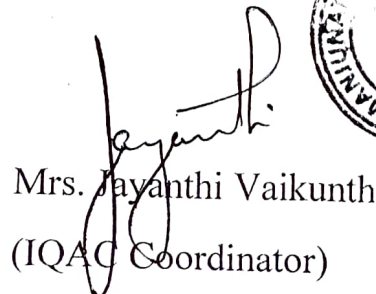 Jayanthi
MANJUNA
Mrs. Jayanthi Vaikunth
(IQAC Coordinator)